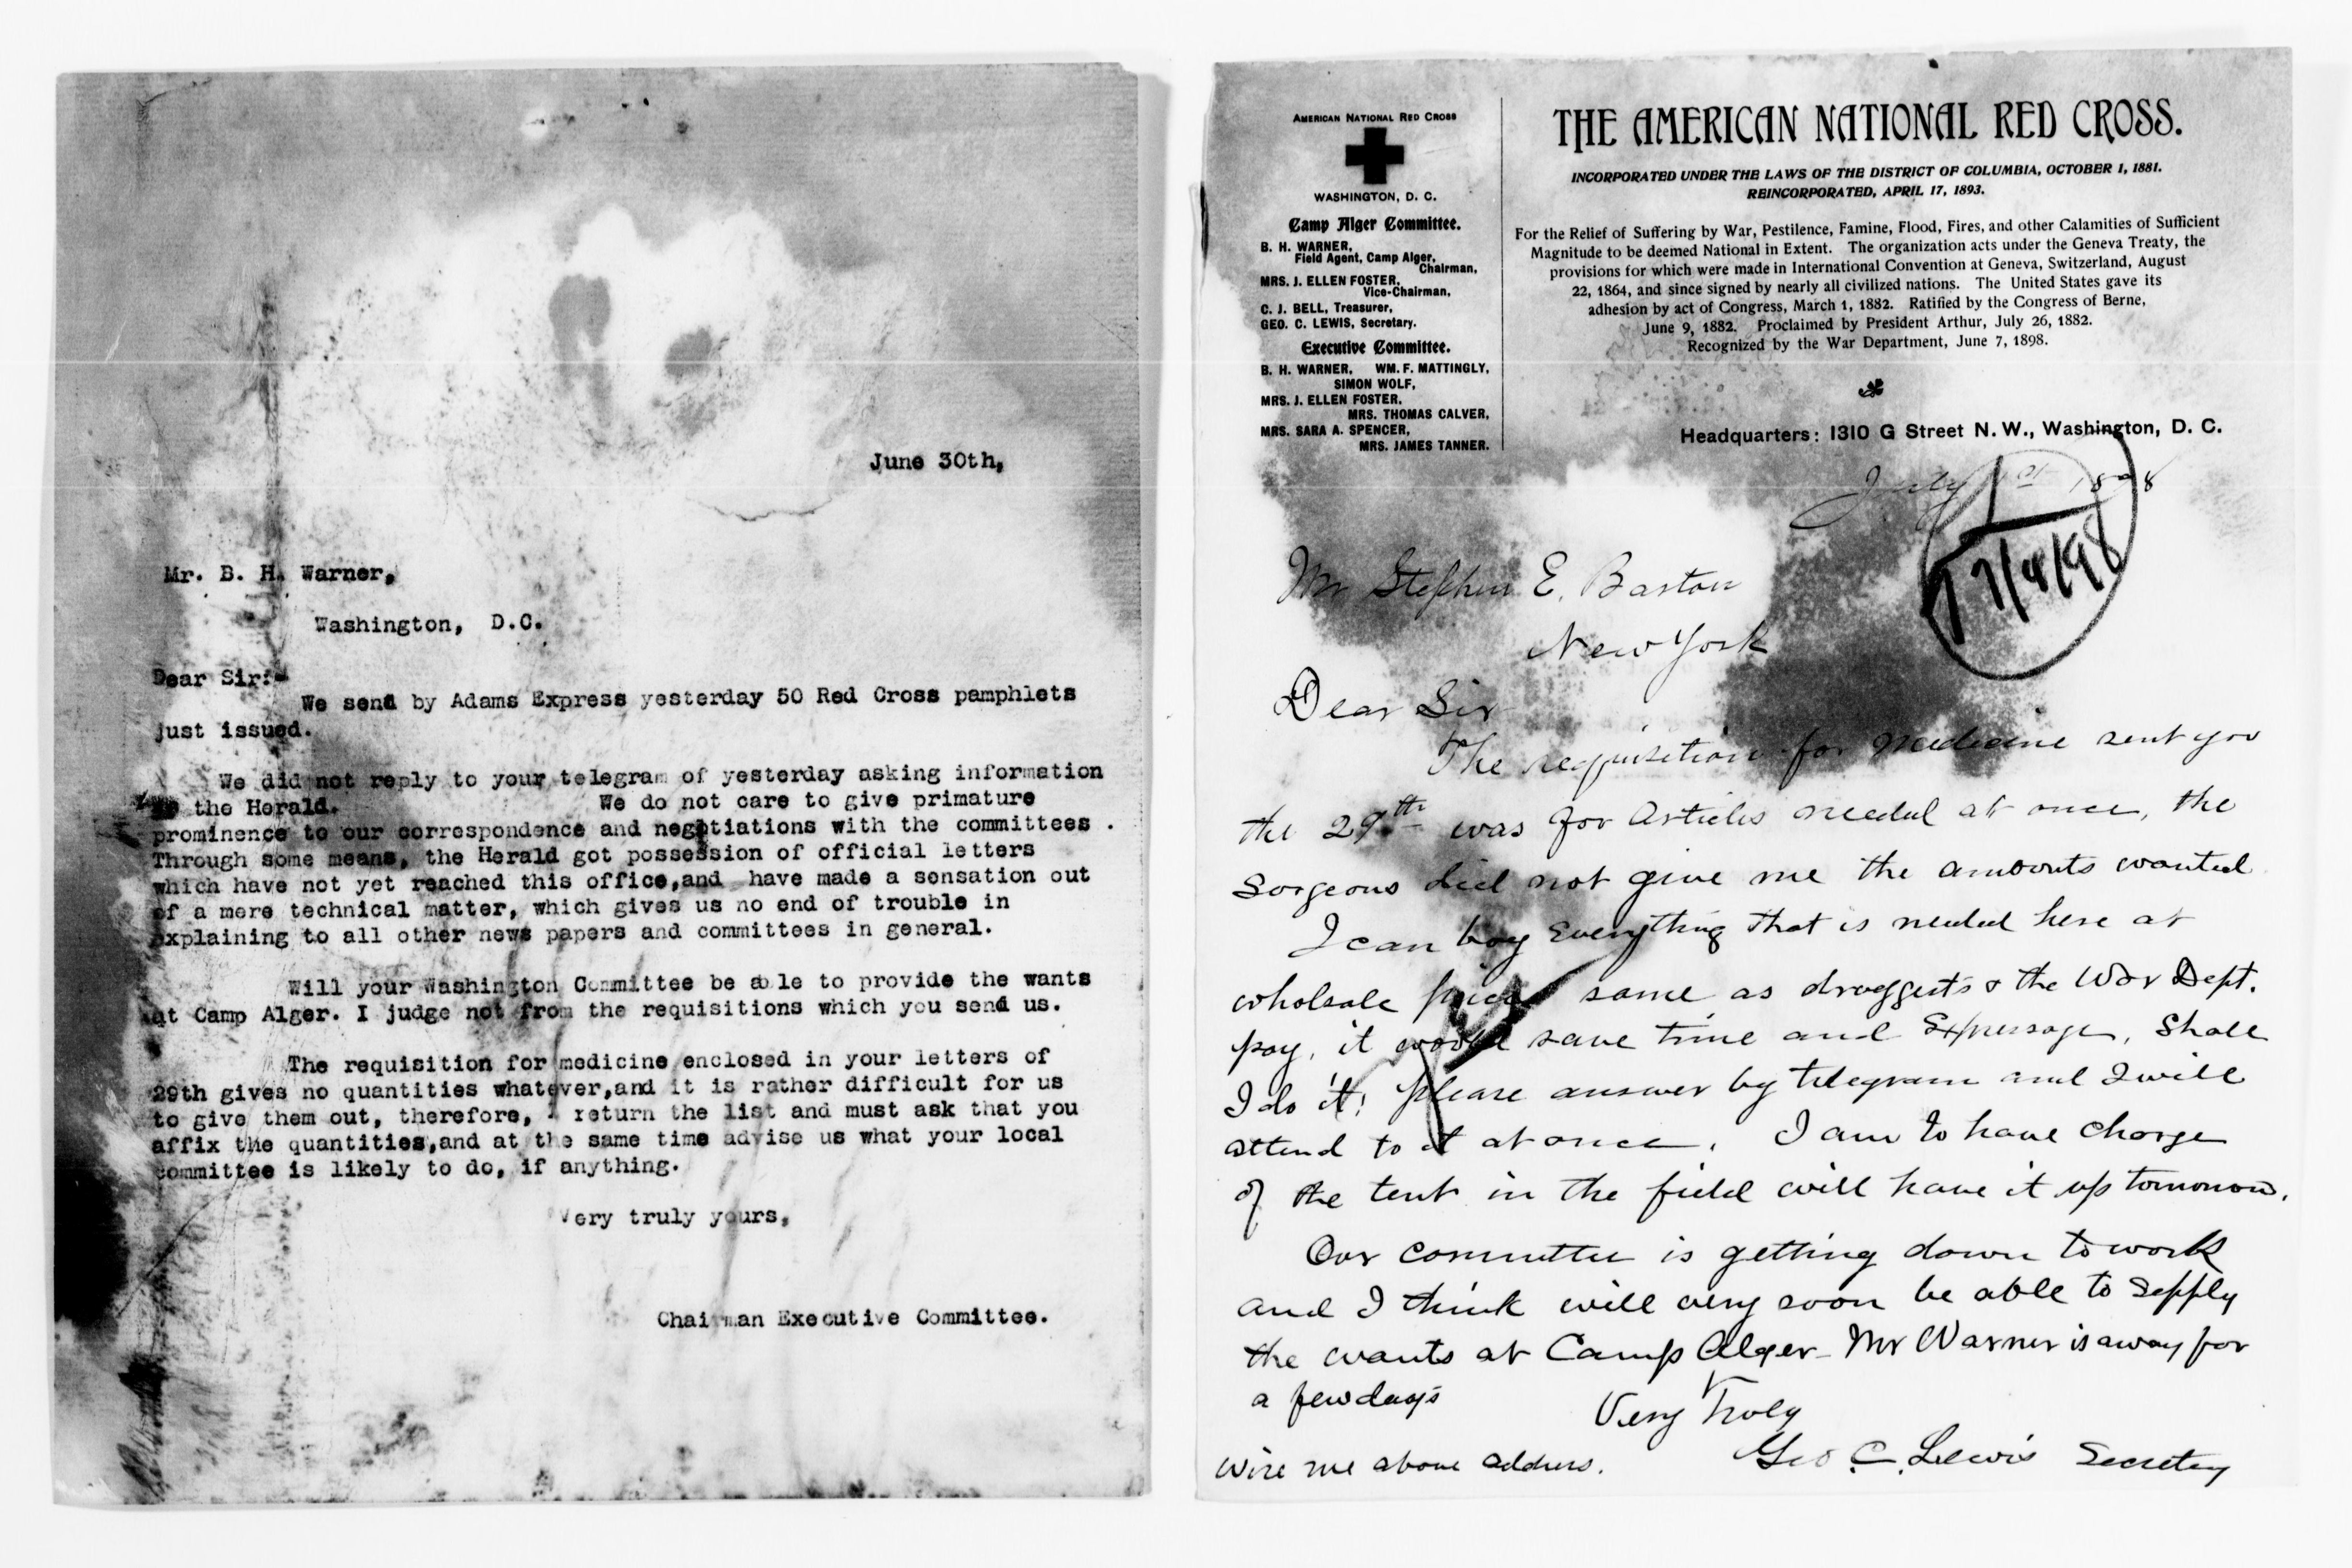 June 30th,
Mr. B. H. Warner,
Washington, D.C.
Dear Sir:-
We send by Adams Express yesterday 50 Red Cross pamphlets
just issued.
We did not reply to your telegram of yesterday asking information
the Herald. We do not care to give primature
prominence to our correspondence and negotiations with the committees .
Through some means, the Herald got possession of official letters
which have not yet reached this office,and have made a sensation out
of a mere technical matter, which gives us no end of trouble in
explaining to all other news papers and committees in general.
Will your Washington Committee be able to provide the wants
at Camp Alger. I judge not from the requisitions which you send us.
The requisition for medicine enclosed in your letters of
29th gives no quantities whatever,and it is rather difficult for us
to give them out, therefore, I return the list and must ask that you
affix the quantities,and at the same time advise us what your local
committee is likely to do, if anything.
Very truly yours,
Chairman Executive Committee.
AMERICAN NATIONAL RED CROSS
WASHINGTON, D. C.
Camp Alger Committee.
B. H. WARNER,
Field Agent, Camp Alger,
Chairman,
MRS. J. ELLEN FOSTER,
Vice-Chairman,
C. J. BELL, Treasurer,
GEO. C. LEWIS, Secretary.
Executive Committee.
B. H. WARNER, WM. F. MATTINGLY,
SIMON WOLF,
MRS. J. ELLEN FOSTER,
MRS. THOMAS CALVER,
MRS. SARA A. SPENCER,
MRS. JAMES TANNER.
THE AMERICAN NATIONAL RED CROSS.
INCORPORATED UNDER THE LAWS OF THE DISTRICT OF COLUMBIA, OCTOBER 1, 1881.
REINCORPORATED, APRIL 17, 1893.
For the Relief of Suffering by War, Pestilence, Famine, Flood, Fires, and other Calamities of Sufficient
Magnitude to be deemed National in Extent. The organization acts under the Geneva Treaty, the
provisions for which were made in International Convention at Geneva, Switzerland, August
22, 1864, and since signed by nearly all civilized nations. The United States gave its
adhesion by act of Congress, March 1, 1882. Ratified by the Congress of Berne,
June 9, 1882. Proclaimed by President Arthur, July 26, 1882.
Recognized by the War Department, June 7, 1898.
Headquarters: 1310 G Street N. W., Washington, D. C.
July 1st 1898
Mr Stephen E. Barton
New York
Dear Sir
The requisition for medicine sent you
the 29th was for Articles needed at once, the
Sorgeons did not give me the amounts wanted
I can buy Everything that is needed here at
wholsale prices same as druggists & the War Dept.
pay, it would save time and Expressage, Shall
I do it? please answer by telegram and I will
attend to it at once. I am to have charge
of the tent in the field will have it up tomorrow.
Our committee is getting down to work
and I think will very soon be able to Supply
the wants at Camp Alger- Mr Warner is away for
a few days
Very Truly
Geo C. Lewis Secretey
Wire me above address.